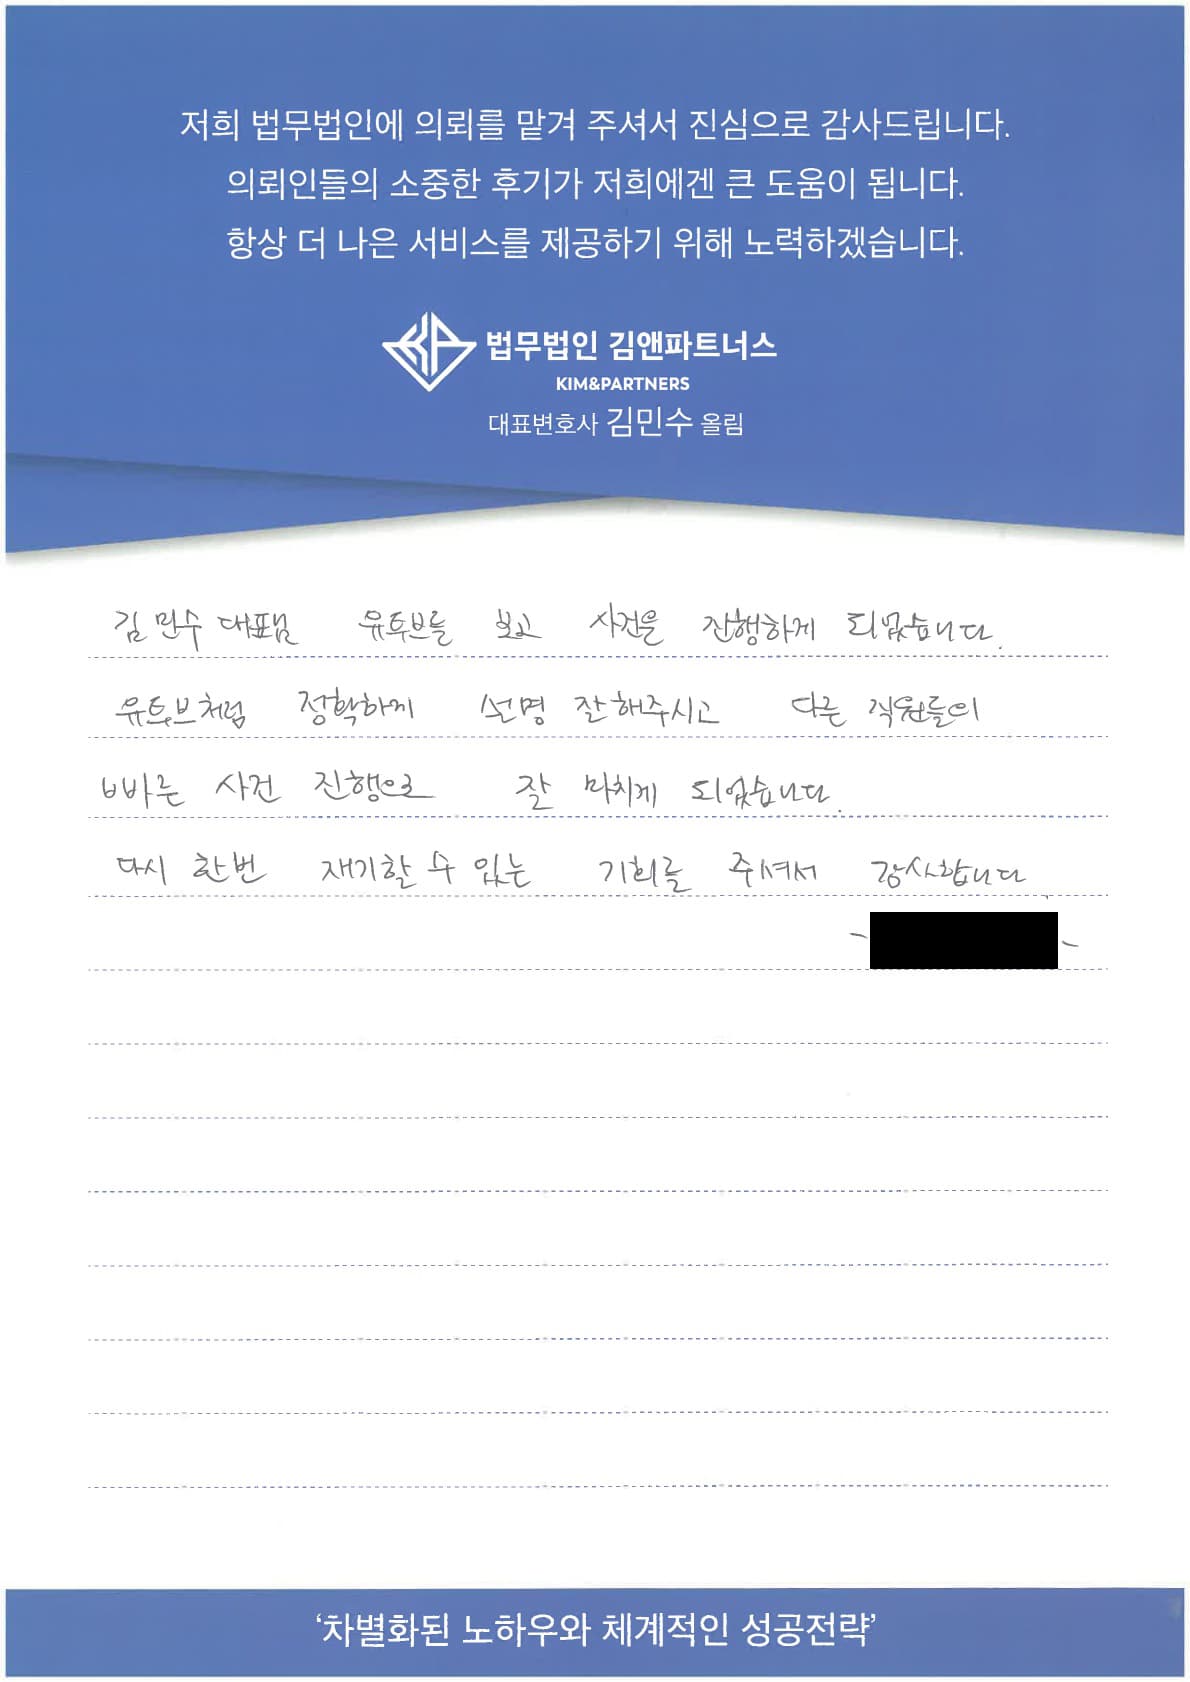 저희 법무법인에 의뢰를 맡겨 주셔서 진심으로 감사드립니다.
의뢰인들의 소중한 후기가 저희에겐 큰 도움이 됩니다.
항상 더 나은 서비스를 제공하기 위해 노력하겠습니다.
법무법인 김앤파트너스
KIM&PARTNERS
대표변호사 김민수 올림
김민수 대표님 유튜브를 보고 사건을 진행하게 되었습니다.
유튜브처럼 정확하게 설명 잘해주시고 다른 직원들의
빠른 사건 진행으로 잘 마치게 되었습니다.
다시 한번 재기할 수 있는 기회를 주셔서 감사합니다.
‘차별화된 노하우와 체계적인 성공전략’